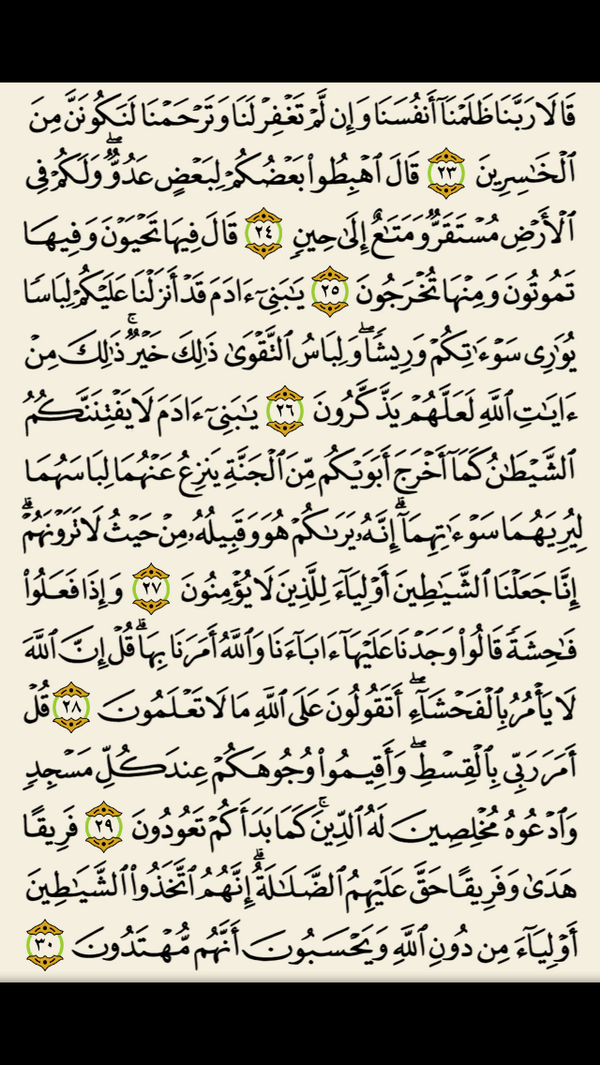 قَالَا رَبَّنَا ظَلَمۡنَآ أَنفُسَنَا وَإِن لَّمۡ تَغۡفِرۡ لَنَا وَتَرۡحَمۡنَا لَنَكُونَنَّ مِنَ
ٱلۡخَٰسِرِينَ ٢٣ قَالَ ٱهۡبِطُواْ بَعۡضُكُمۡ لِبَعۡضٍ عَدُوّٞۖ وَلَكُمۡ فِي
ٱلۡأَرۡضِ مُسۡتَقَرّٞ وَمَتَٰعٌ إِلَىٰ حِينٖ ٢٤ قَالَ فِيهَا تَحۡيَوۡنَ وَفِيهَا
تَمُوتُونَ وَمِنۡهَا تُخۡرَجُونَ ٢٥ يَٰبَنِيٓ ءَادَمَ قَدۡ أَنزَلۡنَا عَلَيۡكُمۡ لِبَاسٗا
يُوَٰرِي سَوۡءَٰتِكُمۡ وَرِيشٗاۖ وَلِبَاسُ ٱلتَّقۡوَىٰ ذَٰلِكَ خَيۡرٞۚ ذَٰلِكَ مِنۡ
ءَايَٰتِ ٱللَّهِ لَعَلَّهُمۡ يَذَّكَّرُونَ ٢٦ يَٰبَنِيٓ ءَادَمَ لَا يَفۡتِنَنَّكُمُ
ٱلشَّيۡطَٰنُ كَمَآ أَخۡرَجَ أَبَوَيۡكُم مِّنَ ٱلۡجَنَّةِ يَنزِعُ عَنۡهُمَا لِبَاسَهُمَا
لِيُرِيَهُمَا سَوۡءَٰتِهِمَآۚ إِنَّهُۥ يَرَىٰكُمۡ هُوَ وَقَبِيلُهُۥ مِنۡ حَيۡثُ لَا تَرَوۡنَهُمۡۗ
إِنَّا جَعَلۡنَا ٱلشَّيَٰطِينَ أَوۡلِيَآءَ لِلَّذِينَ لَا يُؤۡمِنُونَ ٢٧ وَإِذَا فَعَلُواْ
فَٰحِشَةٗ قَالُواْ وَجَدۡنَا عَلَيۡهَآ ءَابَآءَنَا وَٱللَّهُ أَمَرَنَا بِهَاۗ قُلۡ إِنَّ ٱللَّهَ
لَا يَأۡمُرُ بِٱلۡفَحۡشَآءِۖ أَتَقُولُونَ عَلَى ٱللَّهِ مَا لَا تَعۡلَمُونَ ٢٨ قُلۡ
أَمَرَ رَبِّي بِٱلۡقِسۡطِۖ وَأَقِيمُواْ وُجُوهَكُمۡ عِندَ كُلِّ مَسۡجِدٖ
وَٱدۡعُوهُ مُخۡلِصِينَ لَهُ ٱلدِّينَۚ كَمَا بَدَأَكُمۡ تَعُودُونَ ٢٩ فَرِيقًا
هَدَىٰ وَفَرِيقًا حَقَّ عَلَيۡهِمُ ٱلضَّلَٰلَةُۚ إِنَّهُمُ ٱتَّخَذُواْ ٱلشَّيَٰطِينَ
أَوۡلِيَآءَ مِن دُونِ ٱللَّهِ وَيَحۡسَبُونَ أَنَّهُم مُّهۡتَدُونَ ٣٠